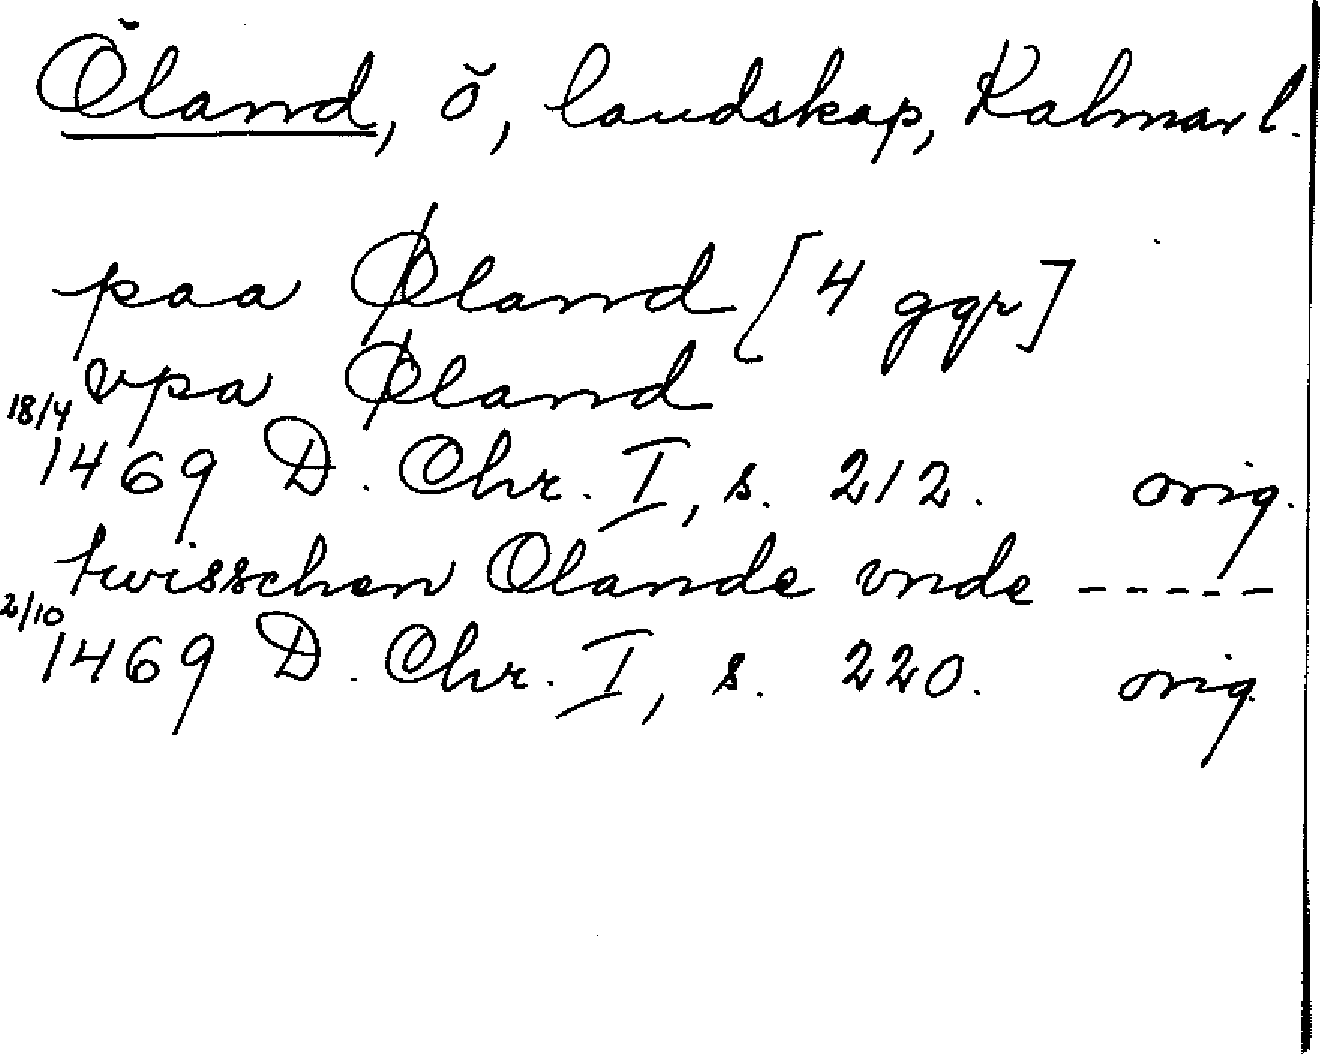 Öland, ö, landskap, Kalmar l.
paa Øland [4 ggr]
vpa Øland
18/4 1469 D. Chr. I, s. 212. orig.
twisschen Olande vnde -----
2/10 1469 D. Chr. I, s. 220. orig.